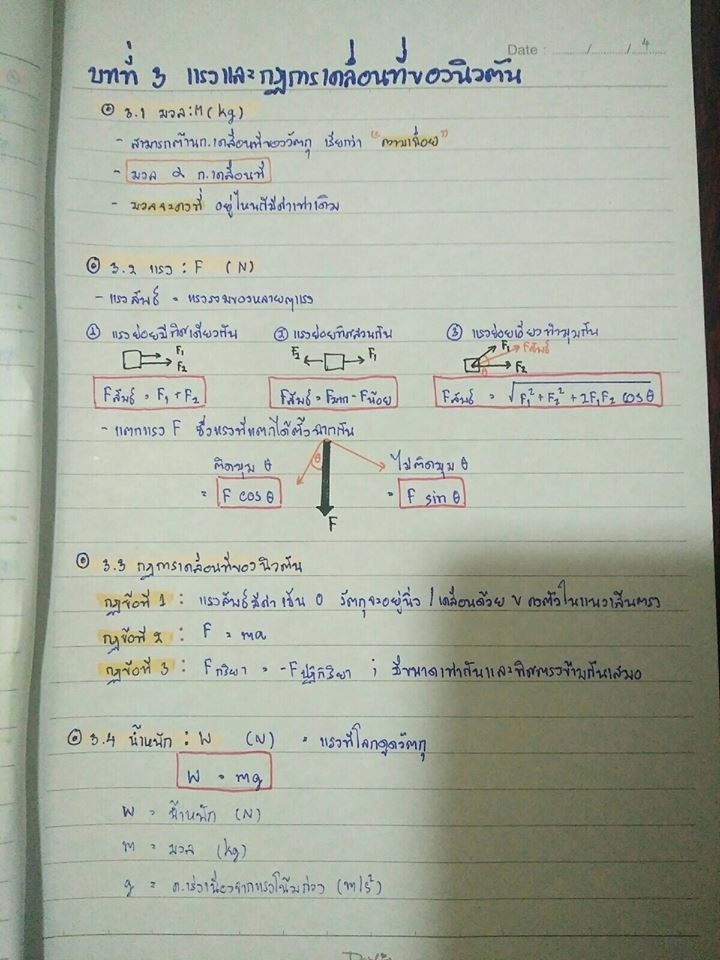 Date : ......../......../ 4
บทที่ 3 แรงและกฎการเคลื่อนที่ของนิวตัน
3.1 มวล : M (kg)
- สามารถต้านก.เคลื่อนที่ของวัตถุ เรียกว่า "ความเฉื่อย"
- มวล α ก.เคลื่อนที่
- มวลจะคงที่ อยู่ไหนก็มีค่าเท่าเดิม
3.2 แรง : F (N)
- แรงลัพธ์ = แรงรวมของหลายๆแรง
① แรงย่อยมีทิศเดียวกัน ② แรงย่อยทิศสวนกัน ③ แรงย่อยเอียงทำมุมกัน
F₁ F₂ F₂ F₁ F₁ Fลัพธ์ θ F₂
Fลัพธ์ = F₁ + F₂ Fลัพธ์ = Fมาก - Fน้อย Fลัพธ์ = √F₁² + F₂² + 2F₁F₂ cos θ
- แตกแรง F ซึ่งแรงที่แตกได้ตั้งฉากกัน
ติดมุม θ θ ไม่ติดมุม θ
= F cos θ = F sin θ
F
3.3 กฎการเคลื่อนที่ของนิวตัน
กฎข้อที่ 1 : แรงลัพธ์มีค่าเป็น 0 วัตถุจะอยู่นิ่ง / เคลื่อนด้วย v คงตัวในแนวเส้นตรง
กฎข้อที่ 2 : F = ma
กฎข้อที่ 3 : Fกริยา = -Fปฏิกิริยา ; มีขนาดเท่ากันและทิศตรงข้ามกันเสมอ
3.4 น้ำหนัก : W (N) = แรงที่โลกดูดวัตถุ
W = mg
W = น้ำหนัก (N)
m = มวล (kg)
g = ค.เร่งเนื่องจากแรงโน้มถ่วง (m/s²)